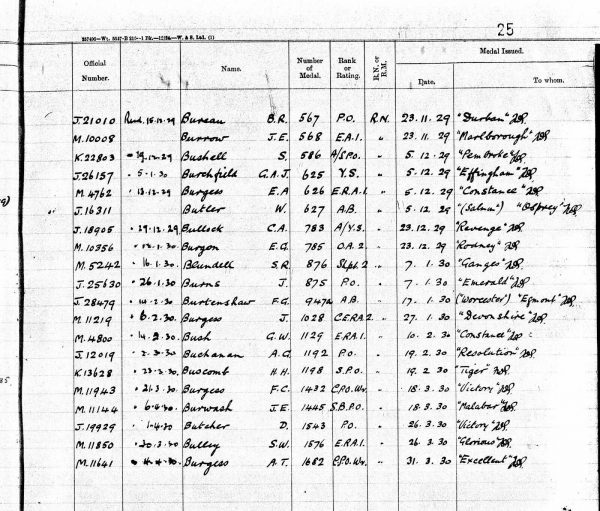 25
Official Number. Name. Number of Medal. Rank or Rating. R.N. or R.M. Medal Issued.
Date. To whom.
J.21010 Bureau B.R. 567 P.O. R.N. 23.11.29 "Durban"
M.10008 Burrow J.E. 568 E.A.I. " 23.11.29 "Marlborough"
K.22803 Bushell S. 586 A/S.P.O. " 5.12.29 "Pembroke"
J.26157 5.1.30 Burchfield G.A.J. 625 Y.S. " 5.12.29 "Effingham"
M.4762 13.12.29 Burgess E.A 626 E.R.A.I. " 5.12.29 "Constance"
J.16311 Butler W. 627 A.B. " 5.12.29 (Salmon) "Osprey"
J.18905 29.12.29 Bullock C.A. 783 A/Y.S. " 23.12.29 "Revenge"
M.10356 Burgon E.G. 785 O.A.2. " 23.12.29 "Rodney"
M.5242 16.1.30 Blundell S.R. 876 Shpt.2 " 7.1.30 "Ganges"
J.25630 26.1.30 Burns J. 875 P.O. " 7.1.30 "Emerald"
J.28479 Burtenshaw F.G. 947a A.B. " 17.1.30 (Worcester) "Egmont"
M.11219 6.2.30 Burgess J. 1028 C.E.R.A.2 " 27.1.30 "Devonshire"
M.4800 14.2.30 Bush G.W. 1129 E.R.A.I. " 10.2.30 "Constance"
J.12019 2.3.30 Buchanan A.G. 1192 P.O. " 19.2.30 "Resolution"
K.13628 Buscomb H.H. 1198 S.P.O. " 19.2.30 "Tiger"
M.11943 21.3.30 Burgess F.C. 1432 C.P.O.Wr. " 18.3.30 "Victory"
M.11144 Burwash J.E. 1445 S.B.P.O. " 18.3.30 "Malabar"
J.19929 1.4.30 Butcher D. 1543 P.O. " 26.3.30 "Victory"
M.11850 30.3.30 Bulley S.W. 1576 E.R.A.I. " 26.3.30 "Glorious"
M.11641 Burgess A.T. 1682 C.P.O.Wr. " 31.3.30 "Excellent"